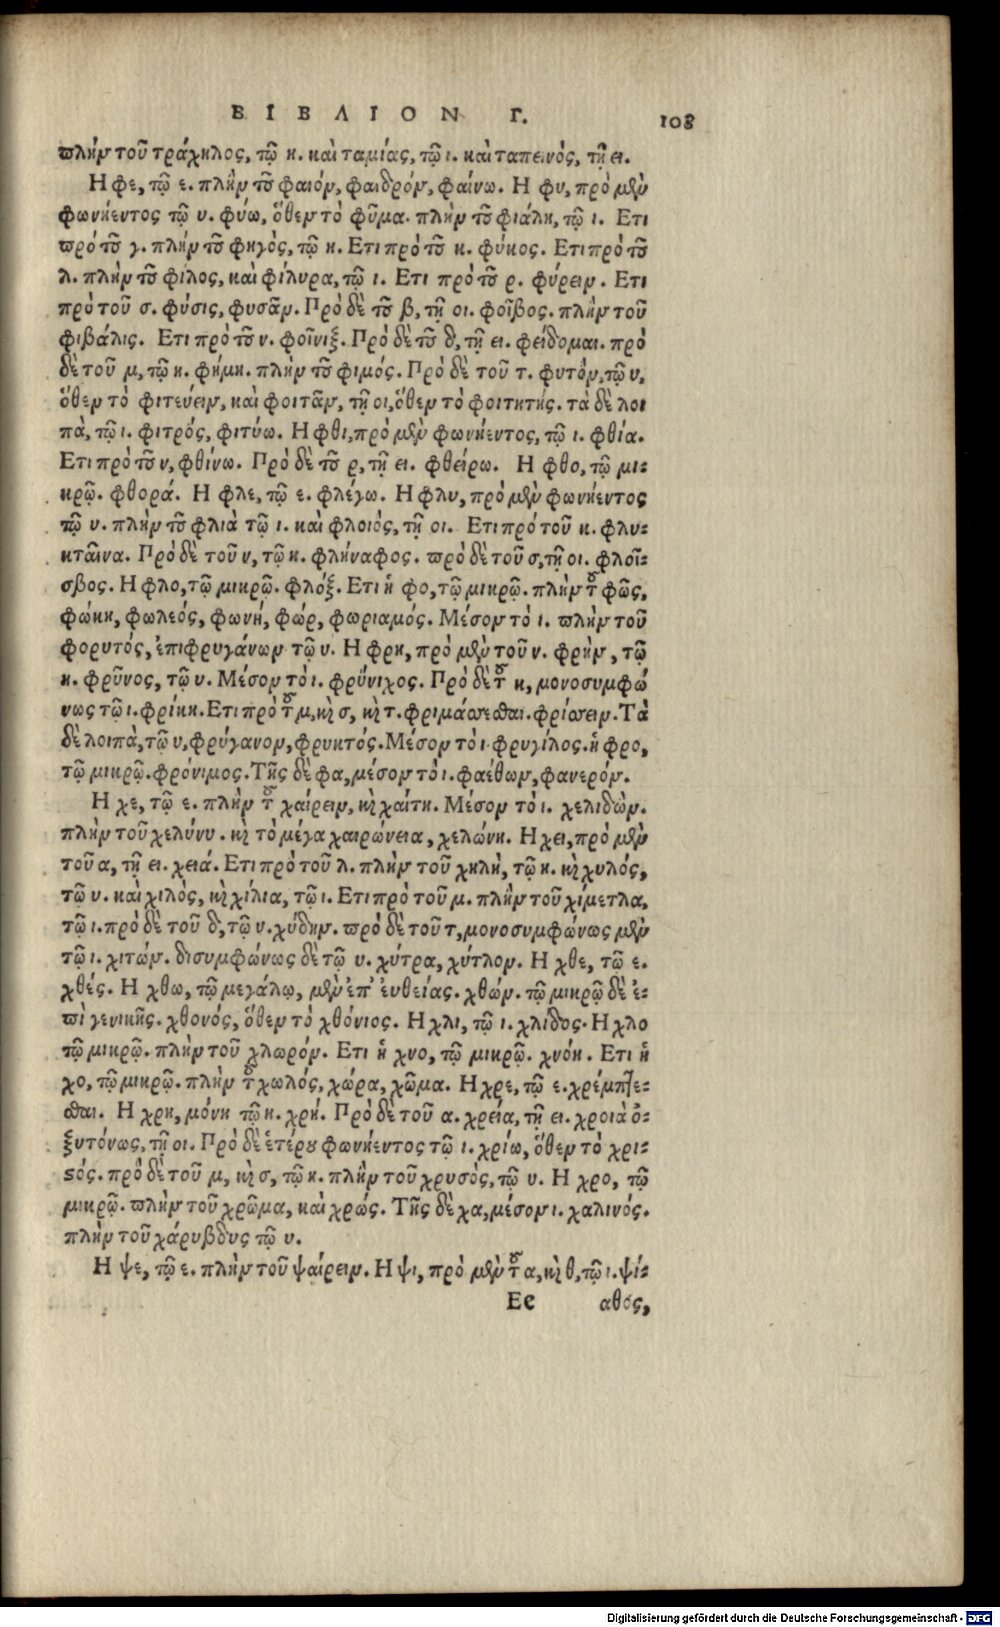 ΒΙΒΛΙΟΝ Γ. 108
πλὴν τοῦ τράχηλος, τῷ η. καὶ ταμίας, τῷ ι. καὶ ταπεινὸς, τῇ ει.
Η φε, τῷ ε. πλὴν τοῦ φαιόν, φαιδρόν, φαίνω. Η φυ, πρὸ μὲν
φωνήεντος τῷ υ. φύω, ὅθεν τὸ φῦμα. πλὴν τοῦ φιάλη, τῷ ι. Ετι
πρὸ τοῦ γ. πλὴν τοῦ φηγὸς, τῷ η. Ετι πρὸ τοῦ κ. φύκος. Ετι πρὸ τοῦ
λ. πλὴν τοῦ φίλος, καὶ φίλυρα, τῷ ι. Ετι πρὸ τοῦ ρ. φύρειν. Ετι
πρὸ τοῦ σ. φύσις, φυσᾶν. Πρὸ δὲ τοῦ β, τῇ οι. φοῖβος. πλὴν τοῦ
φιβάλις. Ετι πρὸ τοῦ ν. φοῖνιξ. Πρὸ δὲ τοῦ δ, τῇ ει. φείδομαι. πρὸ
δὲ τοῦ μ, τῷ η. φήμη. πλὴν τοῦ φιμός. Πρὸ δὲ τοῦ τ. φυτόν, τῷ υ,
ὅθεν τὸ φιτεύειν, καὶ φοιτᾶν, τῇ οι, ὅθεν τὸ φοιτητής. τὰ δὲ λοι
πὰ, τῷ ι. φιτρός, φιτύω. Η φθι, πρὸ μὲν φωνήεντος, τῷ ι. φθία.
Ετι πρὸ τοῦ ν, φθίνω. Πρὸ δὲ τοῦ ρ, τῇ ει. φθείρω. Η φθο, τῷ μι-
κρῷ. φθορά. Η φλε, τῷ ε. φλέγω. Η φλυ, πρὸ μὲν φωνήεντος
τῷ υ. πλὴν τοῦ φλιὰ τῷ ι. καὶ φλοιός, τῇ οι. Ετι πρὸ τοῦ κ. φλυ-
κτᾶινα. Πρὸ δὲ τοῦ ν, τῷ η. φλήναφος. πρὸ δὲ τοῦ σ, τῇ οι. φλοῖ-
σβος. Η φλο, τῷ μικρῷ. φλόξ. Ετι ἡ φο, τῷ μικρῷ. πλὴν τοῦ φῶς,
φώκη, φωλεός, φωνή, φώρ, φωριαμός. Μέσον τὸ ι. πλὴν τοῦ
φορυτός, ἐπιφρυγάνων τῷ υ. Η φρη, πρὸ μὲν τοῦ ν. φρὴν, τῷ
η. φρῦνος, τῷ υ. Μέσον τὸ ι. φρύνιχος. Πρὸ δὲ τοῦ κ, μονοσυμφώ
νως τῷ ι. φρίκη. Ετι πρὸ τοῦ μ, καὶ σ, καὶ τ. φριμάσσεσθαι. φρίσσειν. Τὰ
δὲ λοιπὰ, τῷ υ, φρύγανον, φρυκτός. Μέσον τὸ ι. φρυγίλος. ἡ φρο,
τῷ μικρῷ. φρόνιμος. Τῆς δὲ φα, μέσον τὸ ι. φαέθων, φανερόν.
Η χε, τῷ ε. πλὴν τοῦ χαίρειν, καὶ χαίτη. Μέσον τὸ ι. χελιδὼν.
πλὴν τοῦ χελύνυ. καὶ τὸ μέγα χαιρώνεια, χελώνη. Η χει, πρὸ μὲν
τοῦ α, τῇ ει. χειά. Ετι πρὸ τοῦ λ. πλὴν τοῦ χηλὴ, τῷ η. καὶ χυλός,
τῷ υ. καὶ χιλός, καὶ χίλια, τῷ ι. Ετι πρὸ τοῦ μ. πλὴν τοῦ χίμετλα,
τῷ ι. πρὸ δὲ τοῦ δ, τῷ υ. χύδην. πρὸ δὲ τοῦ τ, μονοσυμφώνως μὲν
τῷ ι. χιτών. δισυμφώνως δὲ τῷ υ. χύτρα, χύτλον. Η χθε, τῷ ε.
χθές. Η χθω, τῷ μεγάλῳ, μὲν ἐπ' ἐυθείας. χθών. τῷ μικρῷ δὲ ἐ-
πὶ γενικῆς. χθονός, ὅθεν τὸ χθόνιος. Η χλι, τῷ ι. χλιδος. Η χλο
τῷ μικρῷ. πλὴν τοῦ χλωρόν. Ετι ἡ χνο, τῷ μικρῷ. χνόη. Ετι ἡ
χο, τῷ μικρῷ. πλὴν τοῦ χωλός, χώρα, χῶμα. Η χρε, τῷ ε. χρέμπτε-
σθαι. Η χρη, μόνη τῷ η. χρή. Πρὸ δὲ τοῦ α. χρεία, τῇ ει. χροιὰ ὀ-
ξυτόνως, τῇ οι. Πρὸ δὲ ἑτέρου φωνήεντος τῷ ι. χρίω, ὅθεν τὸ χρι-
στός. πρὸ δὲ τοῦ μ, καὶ σ, τῷ η. πλὴν τοῦ χρυσὸς, τῷ υ. Η χρο, τῷ
μικρῷ. πλὴν τοῦ χρῶμα, καὶ χρώς. Τῆς δὲ χα, μέσον ι. χαλινός.
πλὴν τοῦ χάρυβδυς τῷ υ.
Η ψε, τῷ ε. πλὴν τοῦ ψαίρειν. Η ψι, πρὸ μὲν τοῦ α, καὶ θ, τῷ ι. ψί-
Ee αθος,
Digitalisierung gefördert durch die Deutsche Forschungsgemeinschaft - DFG